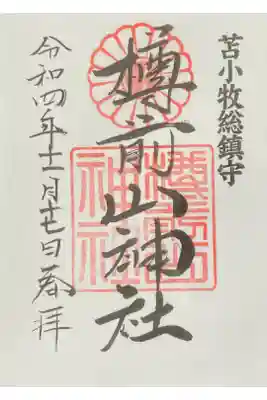 苫小牧総鎮守
樽前山神社
樽前山
神社
令和四年十一月十七日奉拝